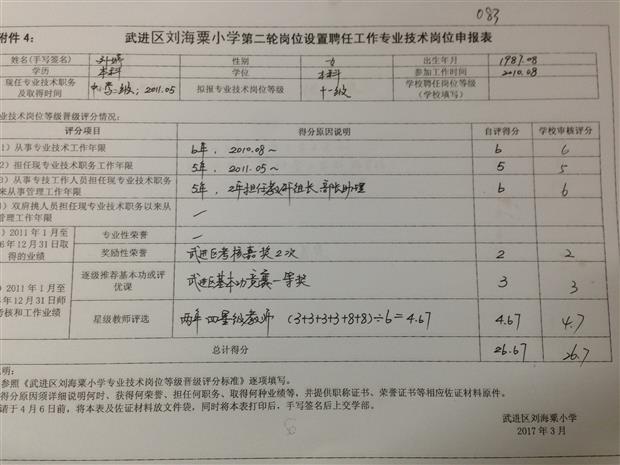 083
附件 4：
武进区刘海粟小学第二轮岗位设置聘任工作专业技术岗位申报表
姓名(手写签名) 性别 女 出生年月 1987.08
学历 本科 学位 本科 参加工作时间 2010.08
现任专业技术职务及取得时间 2011.05 拟报专业技术岗位等级 十一级 学校聘任岗位等级(学校填写)
业技术岗位等级晋级评分情况：
评分项目 得分原因说明 自评得分 学校审核评分
1）从事专业技术工作年限 6年，2010.08~ 6 6
2）担任现专业技术职务工作年限 5年，2011.05~ 5 5
3）从事专技工作人员担任现专业技术职务以来从事管理工作年限 5年，2年担任教研组长、部长助理 6 6
）双肩挑人员担任现专业技术职务以来从事管理工作年限 —
）2011 年 1 月至
6 年 12 月 31 日取得的业绩
专业性荣誉 —
奖励性荣誉 武进区考核嘉奖2次 2 2
2011 年 1 月至
年 12 月 31 日师
考核和工作业绩
逐级推荐基本功或评优课 武进区基本功竞赛一等奖 3 3
星级教师评选 两年四星级教师 (3+3+3+3+8+8)÷6=4.67 4.67 4.7
总计得分 26.67 26.7
说明：
参照《武进区刘海粟小学专业技术岗位等级晋级评分标准》逐项填写。
得分原因须详细说明何时、获得何荣誉、担任何职务、取得何种业绩等，并提供职称证书、荣誉证书等相应佐证材料原件。
请于 4 月 6 日前，将本表及佐证材料放文件袋，同时将本表打印后，手写签名后上交学部。
武进区刘海粟小学
2017 年 3 月